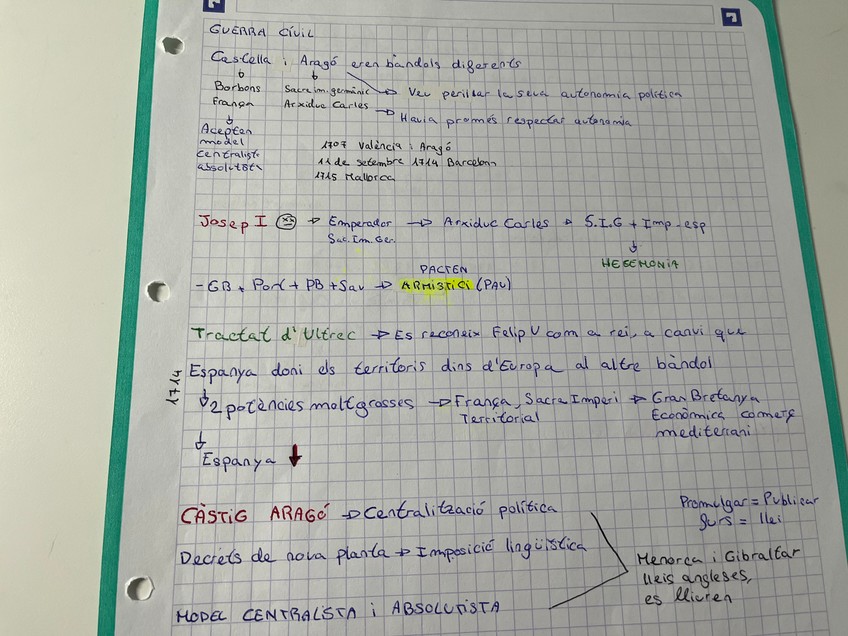 GUERRA CÍVIL
Castella i Aragó eren bàndols diferents
Borbons Sacre im. germànic → Veu perillar la seva autonomia política
França Arxiduc Carles → Havia promés respectar autonomia
Acepten
model
centralista
absolutista
1707 València i Aragó
11 de setembre 1714 Barcelona
1715 Mallorca
Josep I → Emperador → Arxiduc Carles → S.I.G + Imp-esp
Sac. Im. Ger.
HEGEMONIA
PACTEN
- GB + Port + PB + Sav → ARMISTICI (PAU)
Tractat d'Ultrec → Es reconeix Felip V com a rei, a canvi que
Espanya doni els territoris dins d'Europa al altre bàndol
1714
2 potències molt grosses → França, Sacra Imperi → Gran Bretanya
Territorial Econòmica comerç
mediterrani
Espanya ↓
CÀSTIG ARAGÓ → Centralització política
Promulgar = Publicar
furs = llei
Decrets de nova planta → Imposició lingüística
Menorca i Gibraltar
lleis angleses,
es lliuren
MODEL CENTRALISTA i ABSOLUTISTA